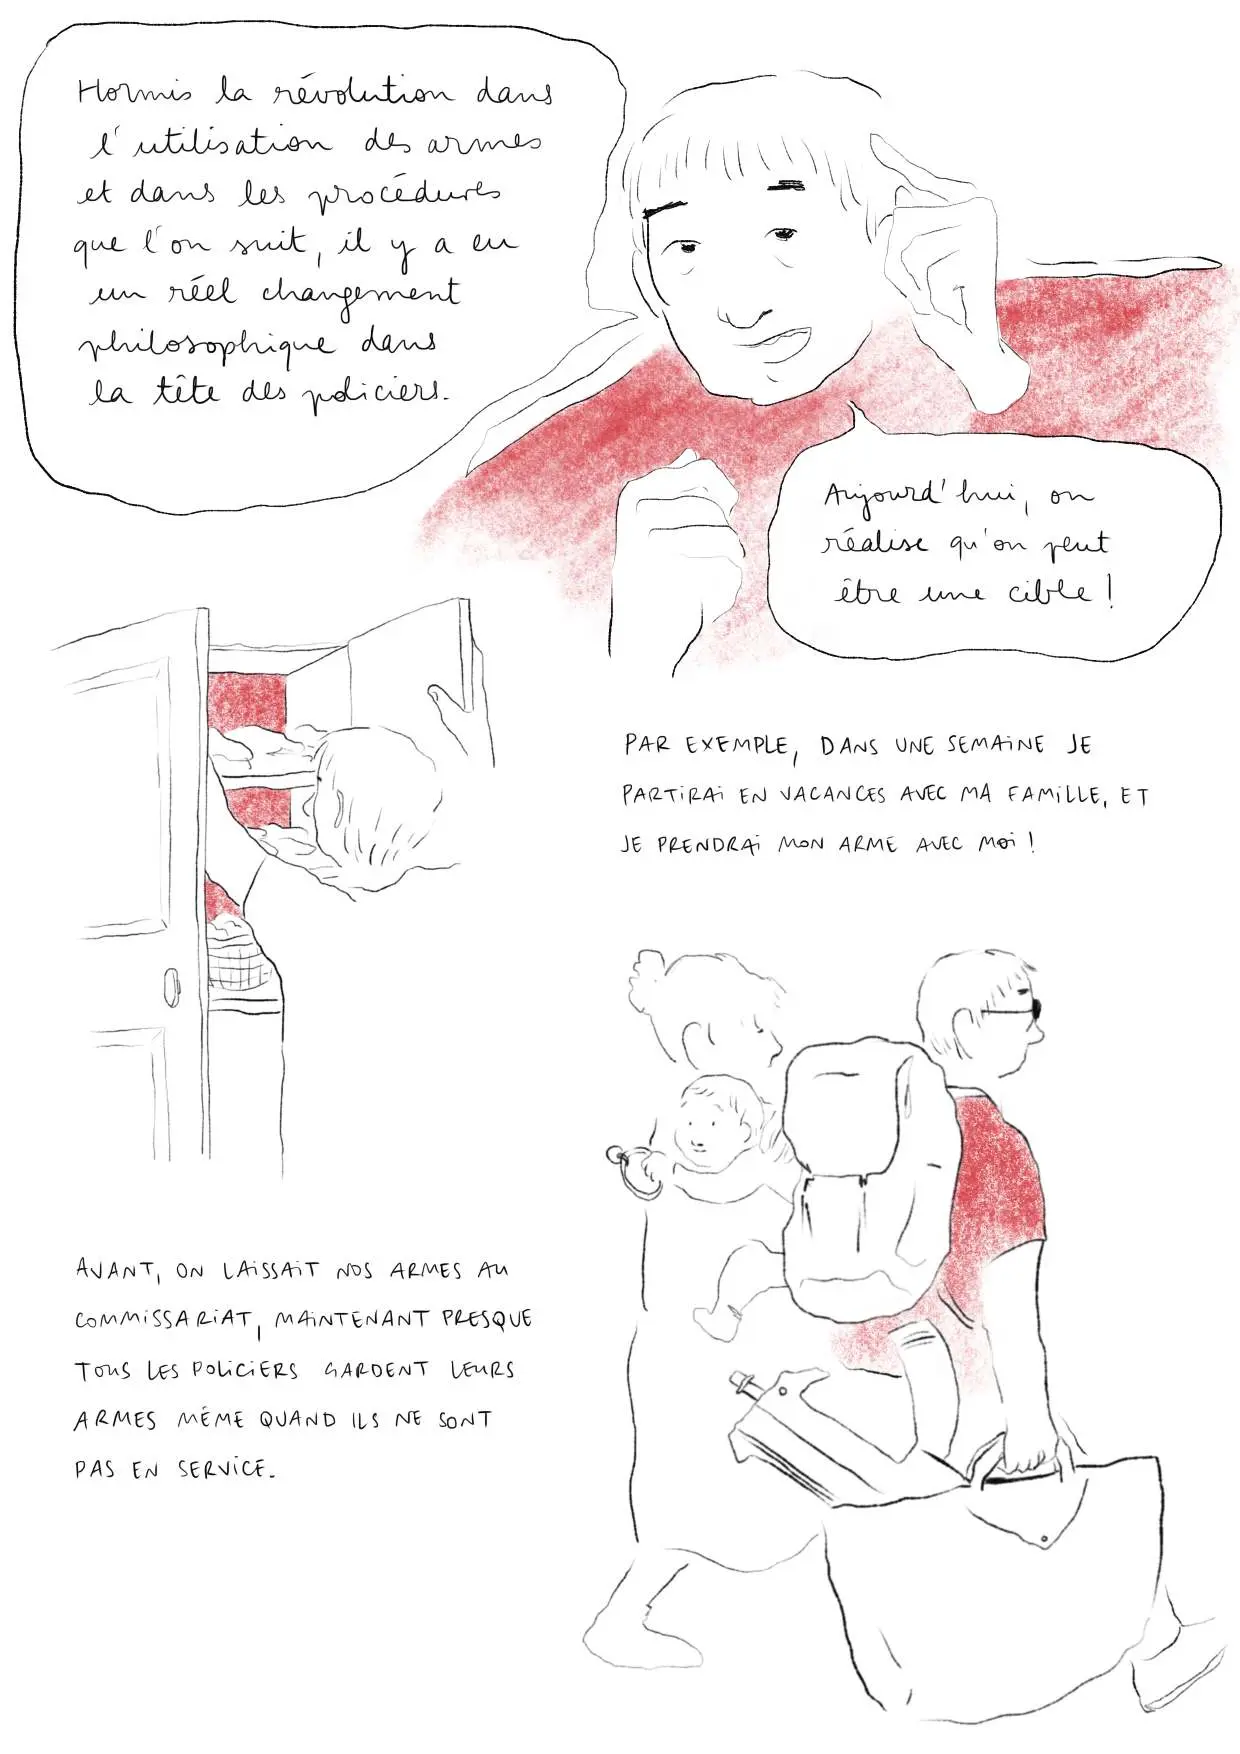 Hormis la révolution dans
l'utilisation des armes
et dans les procédures
que l'on suit, il y a eu
un réel changement
philosophique dans
la tête des policiers.
Aujourd'hui, on
réalise qu'on peut
être une cible !
PAR EXEMPLE, DANS UNE SEMAINE JE
PARTIRAI EN VACANCES AVEC MA FAMILLE, ET
JE PRENDRAI MON ARME AVEC MOI !
AVANT, ON LAISSAIT NOS ARMES AU
COMMISSARIAT, MAINTENANT PRESQUE
TOUS LES POLICIERS GARDENT LEURS
ARMES MÊME QUAND ILS NE SONT
PAS EN SERVICE.